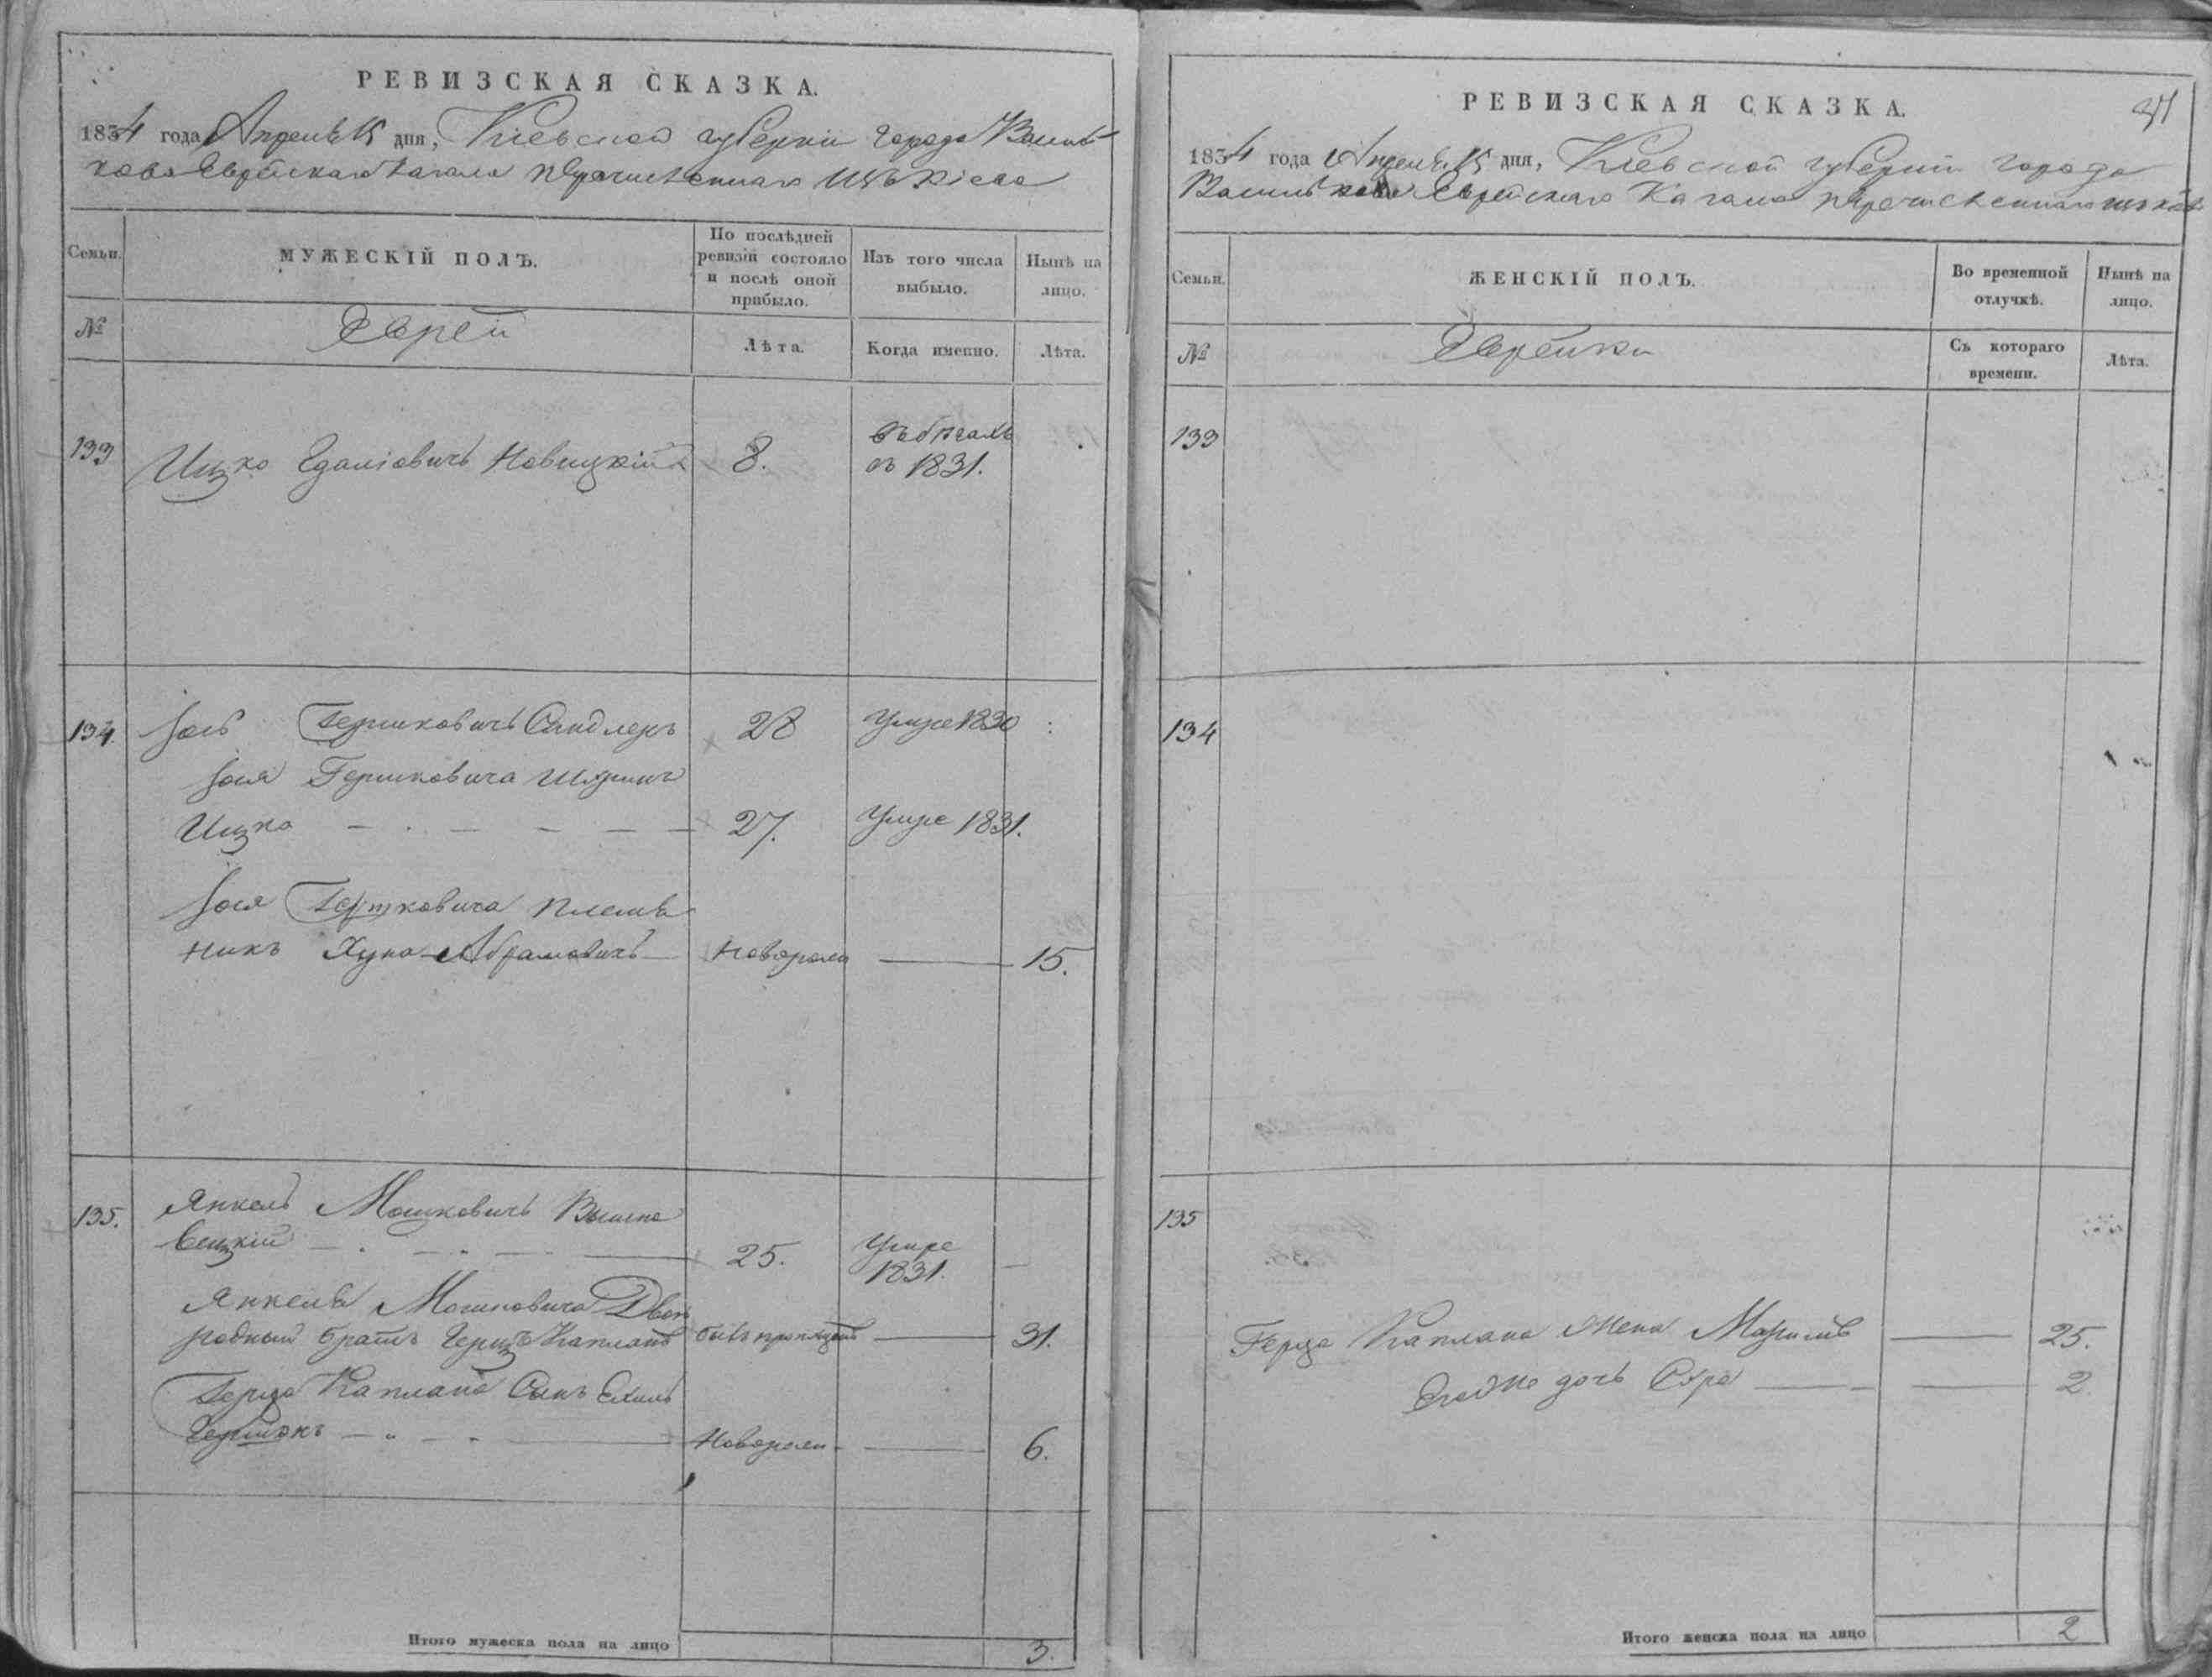 РЕВИЗСКАЯ СКАЗКА.
1834 года Апреля 15 дня, Кіевской губерніи города Василь-
кова Еврейскаго Кагала перечисленнаго изъ Кіева
Семьи.
МУЖЕСКІЙ ПОЛЪ.
По послѣдней
ревизіи состояло
и послѣ оной
прибыло.
Изъ того числа
выбыло.
Нынѣ на
лицо.
№
Евреи
Лѣта.
Когда именно.
Лѣта.
133
Ицко Гдаліовичъ Новицкій
8.
въ бегахъ
съ 1831.
134.
Іось Гершковичъ Сандлеръ
28
Умре 1830
Іося Гершковича
Ицко
27.
Умре 1831.
Іося Гершковича племя
никъ Хуна Абрамовичъ
Новорож
15.
135.
Янкель Мошковичъ Вышне
вецкій
25.
Умре
1831.
Янкеля Мошковича Двою
родный братъ Герцъ Капланъ
былъ пропущенъ
31.
Герца Каплана Сынъ Ехиль
Гершонъ
Новорож
6.
Итого мужеска пола на лицо
3.
РЕВИЗСКАЯ СКАЗКА.
1834 года Апреля 15 дня, Кіевской губерніи города
Василькова Еврейскаго Кагала перечисленнаго изъ
Семьи.
ЖЕНСКІЙ ПОЛЪ.
Во временной
отлучкѣ.
Нынѣ на
лицо.
№
Еврейки
Съ котораго
времени.
Лѣта.
133
134
135
Герца Каплана жена
25.
дочь Сура
2
Итого женска пола на лицо
2